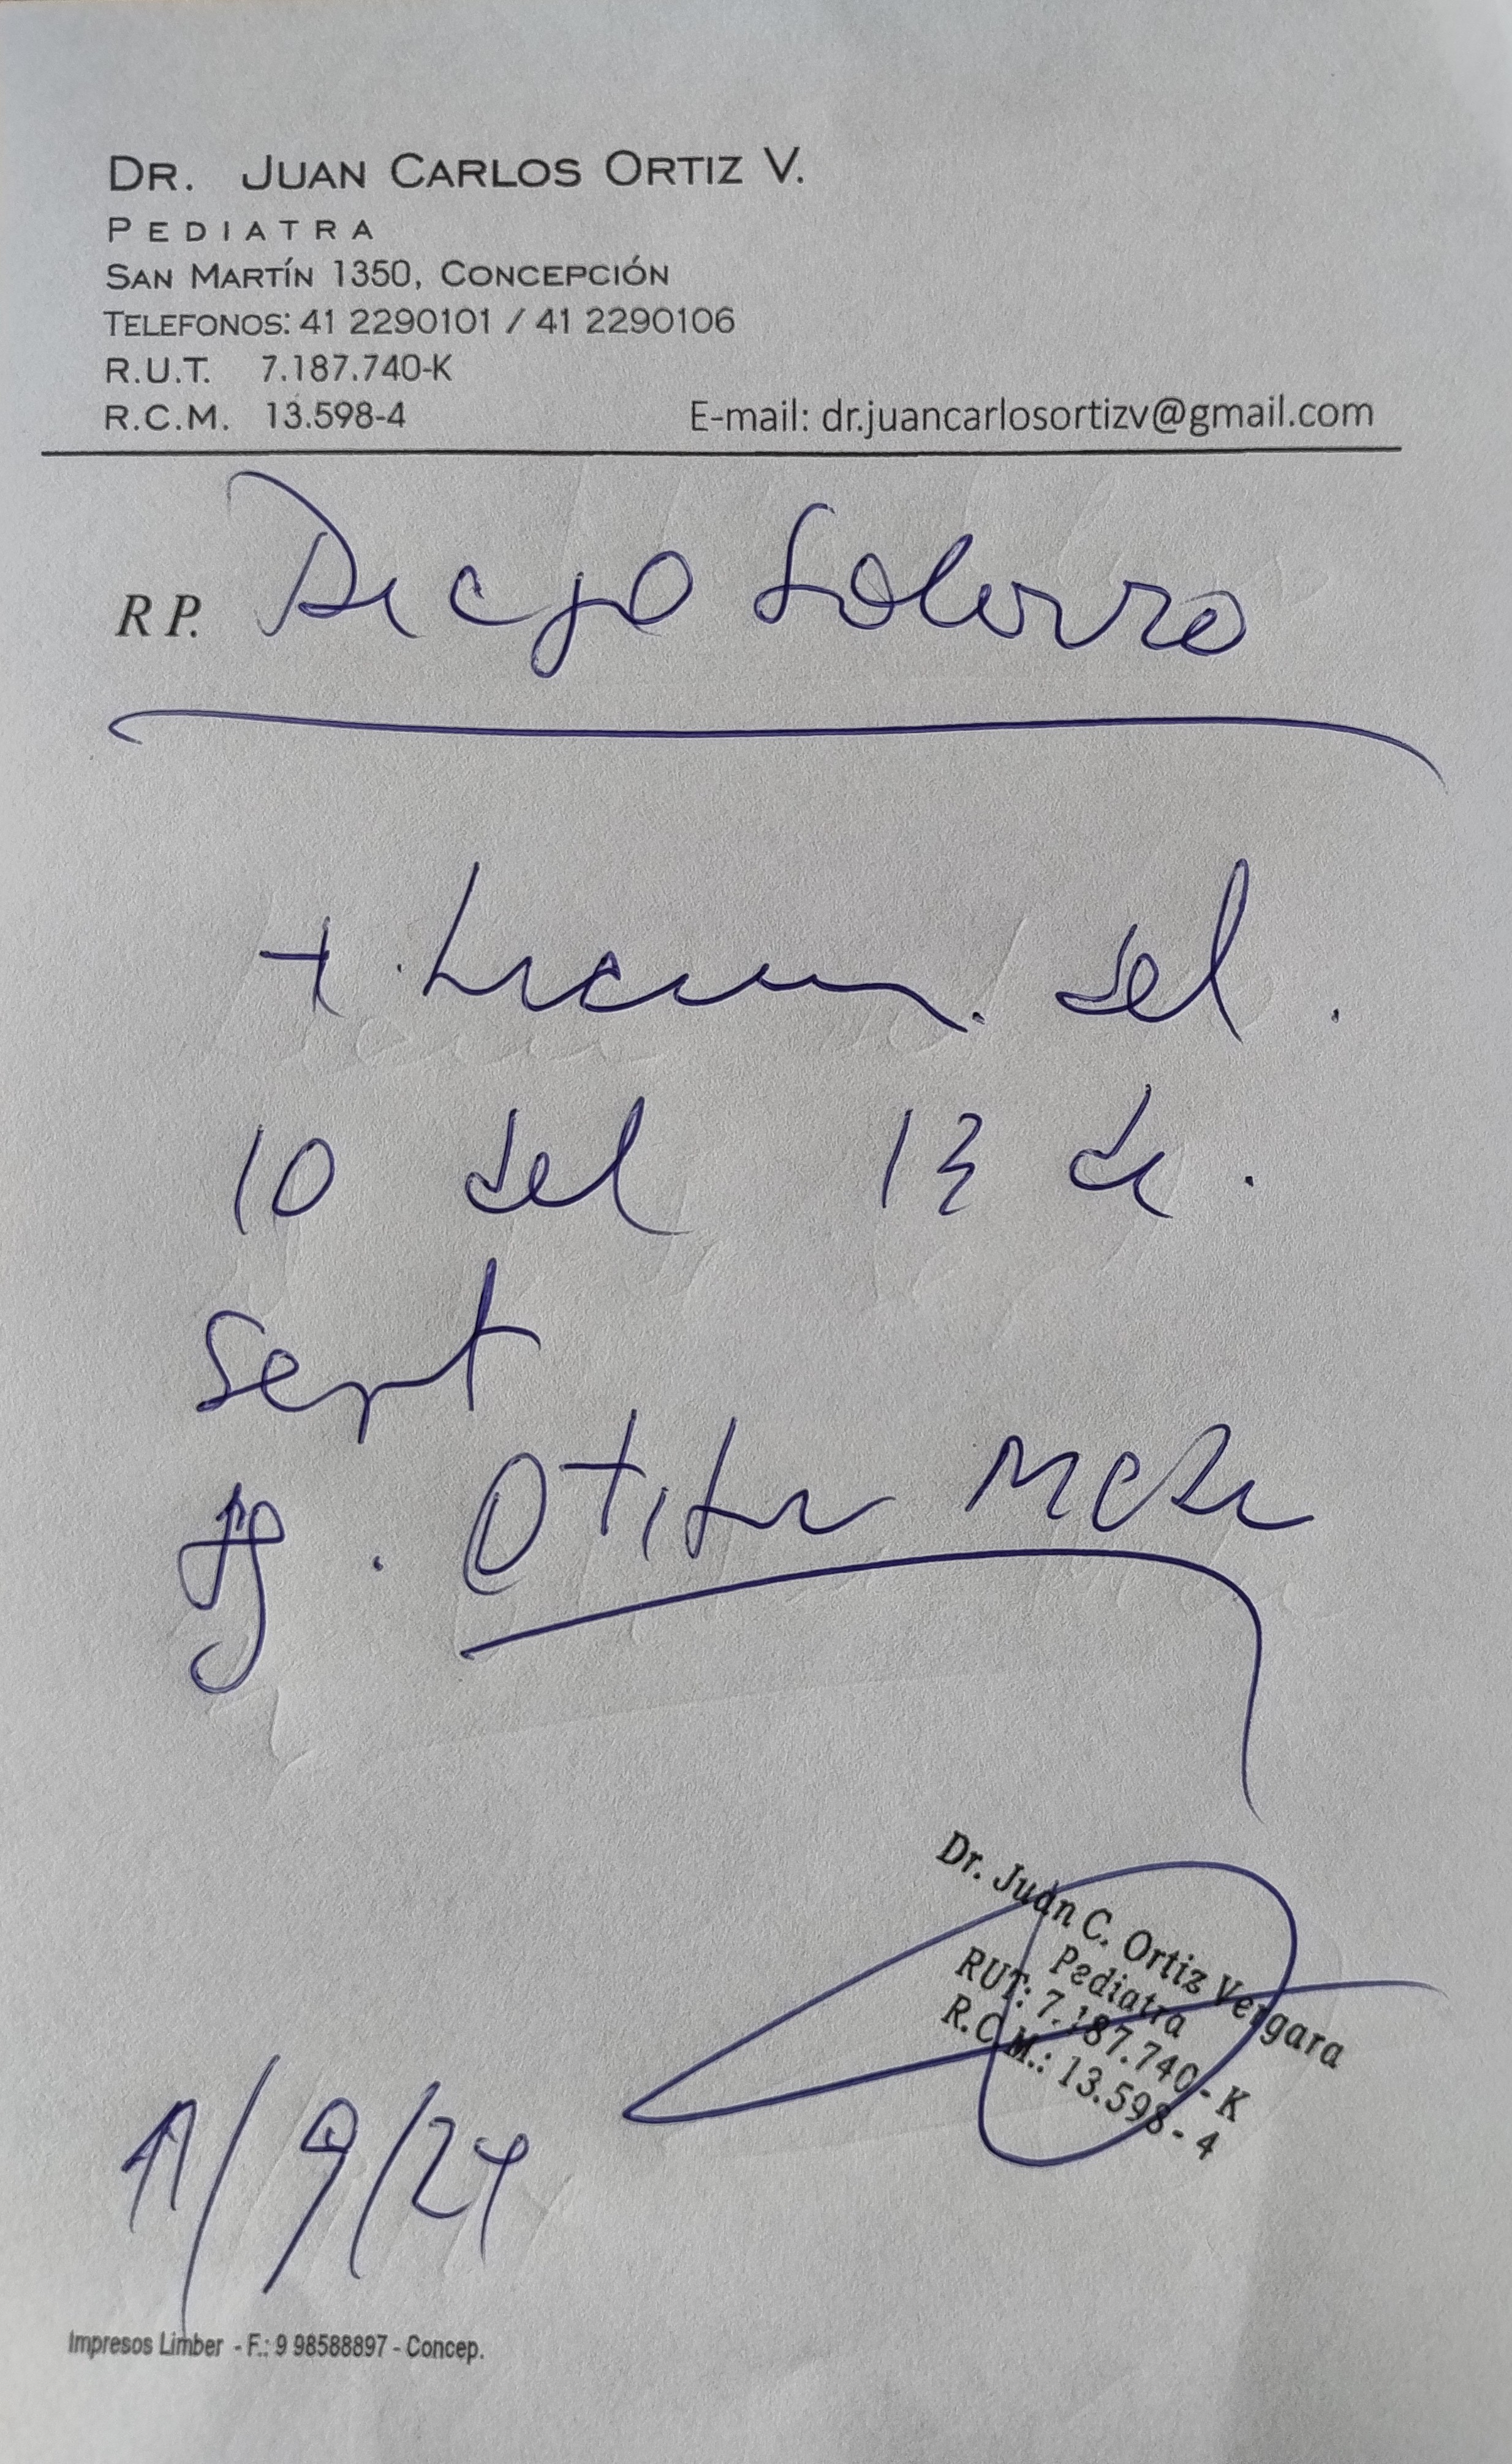 DR. JUAN CARLOS ORTIZ V.
PEDIATRA
SAN MARTÍN 1350, CONCEPCIÓN
TELEFONOS: 41 2290101 / 41 2290106
R.U.T. 7.187.740-K
R.C.M. 13.598-4
E-mail: dr.juancarlosortizv@gmail.com
RP. Diego
+ del.
10 del 13 de.
Sept
Dg. Otitis Media
Dr. Juan C. Ortiz Vergara
Pediatra
RUT: 7.187.740-K
R.C.M.: 13.598-4
11/9/24
Impresos Limber - F.: 9 98588897 - Concep.